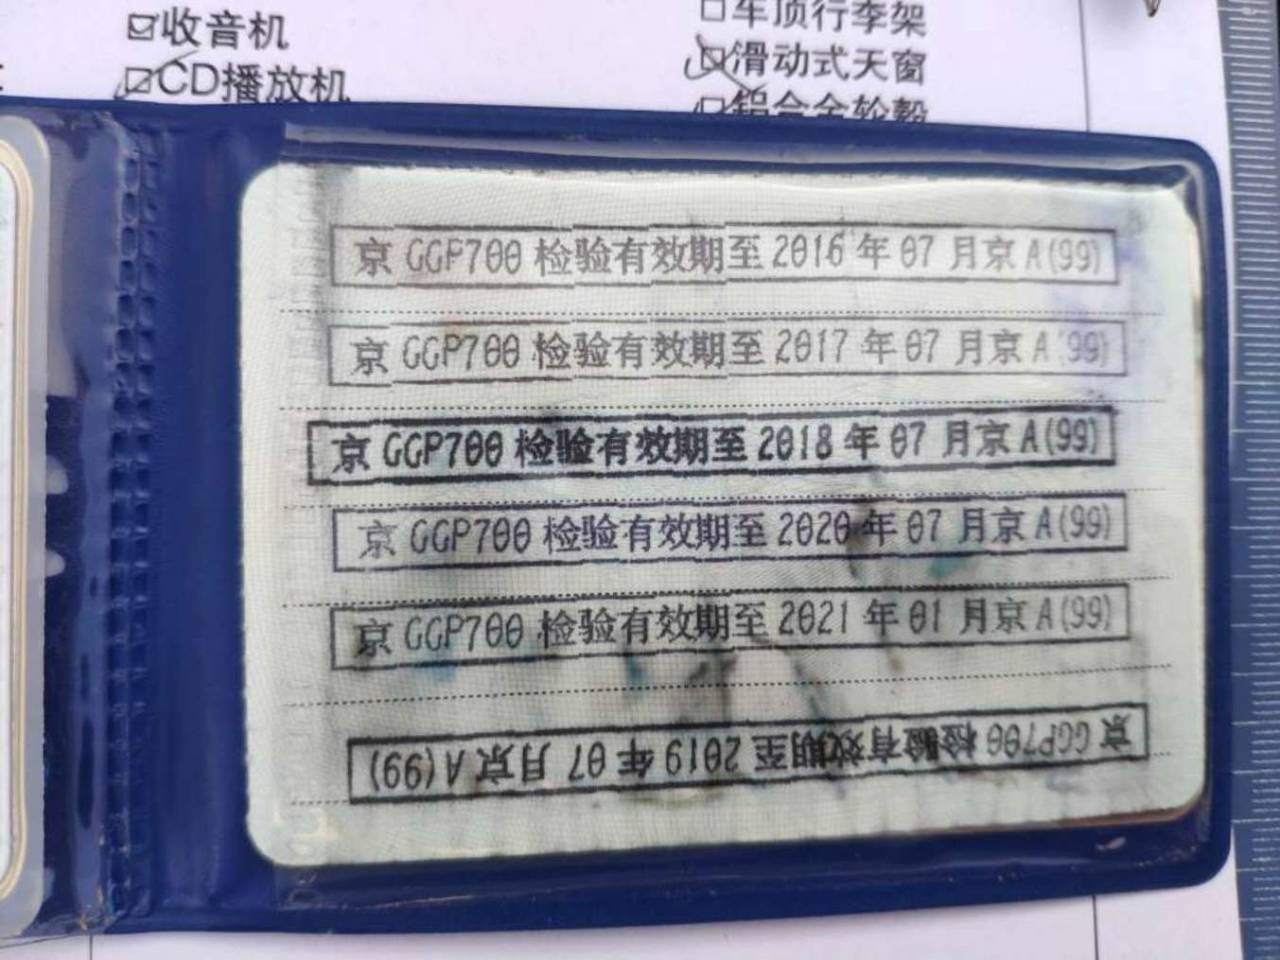 收音机
车顶行李架
CD播放机
滑动式天窗
铝合金轮毂
京 GGP700 检验有效期至 2016 年 07 月京 A(99)
京 GGP700 检验有效期至 2017 年 07 月京 A(99)
京 GGP700 检验有效期至 2018 年 07 月京 A(99)
京 GGP700 检验有效期至 2020 年 07 月京 A(99)
京 GGP700 检验有效期至 2021 年 01 月京 A(99)
京 GGP700 检验有效期至 2019 年 07 月京 A(99)